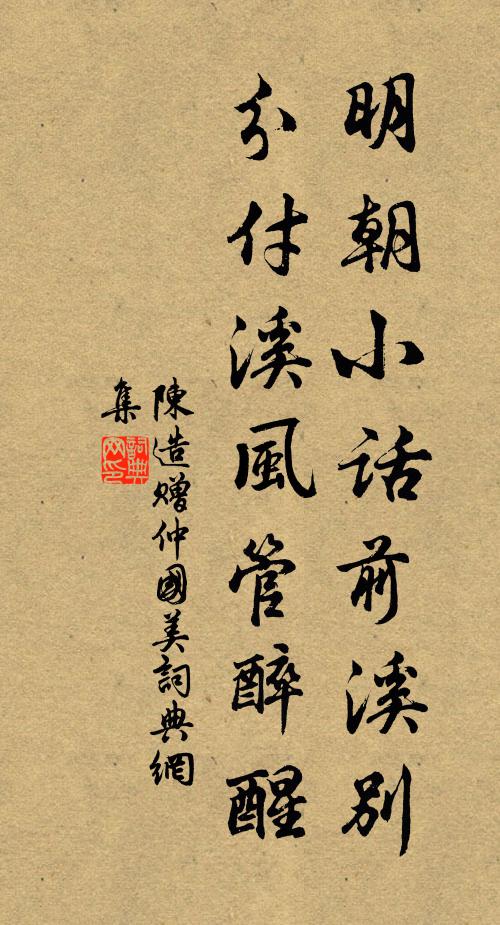 明朝小話前溪別
分付溪風管醉醒
陳造贈仲國美詞典網
集
詞典
网印